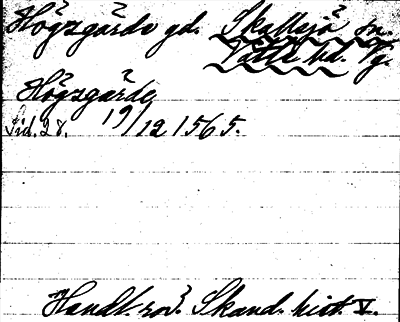 Högzgärde gd. Skallsjö sn.
Vättle hd. Vg.
Högzgärde
Sid. 28. 19/12 1565.
Handl. rör. Skand. hist. V.